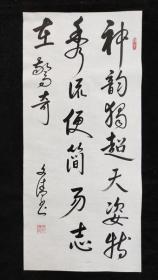 神韵独超天姿特
秀流便简易志
在惊奇